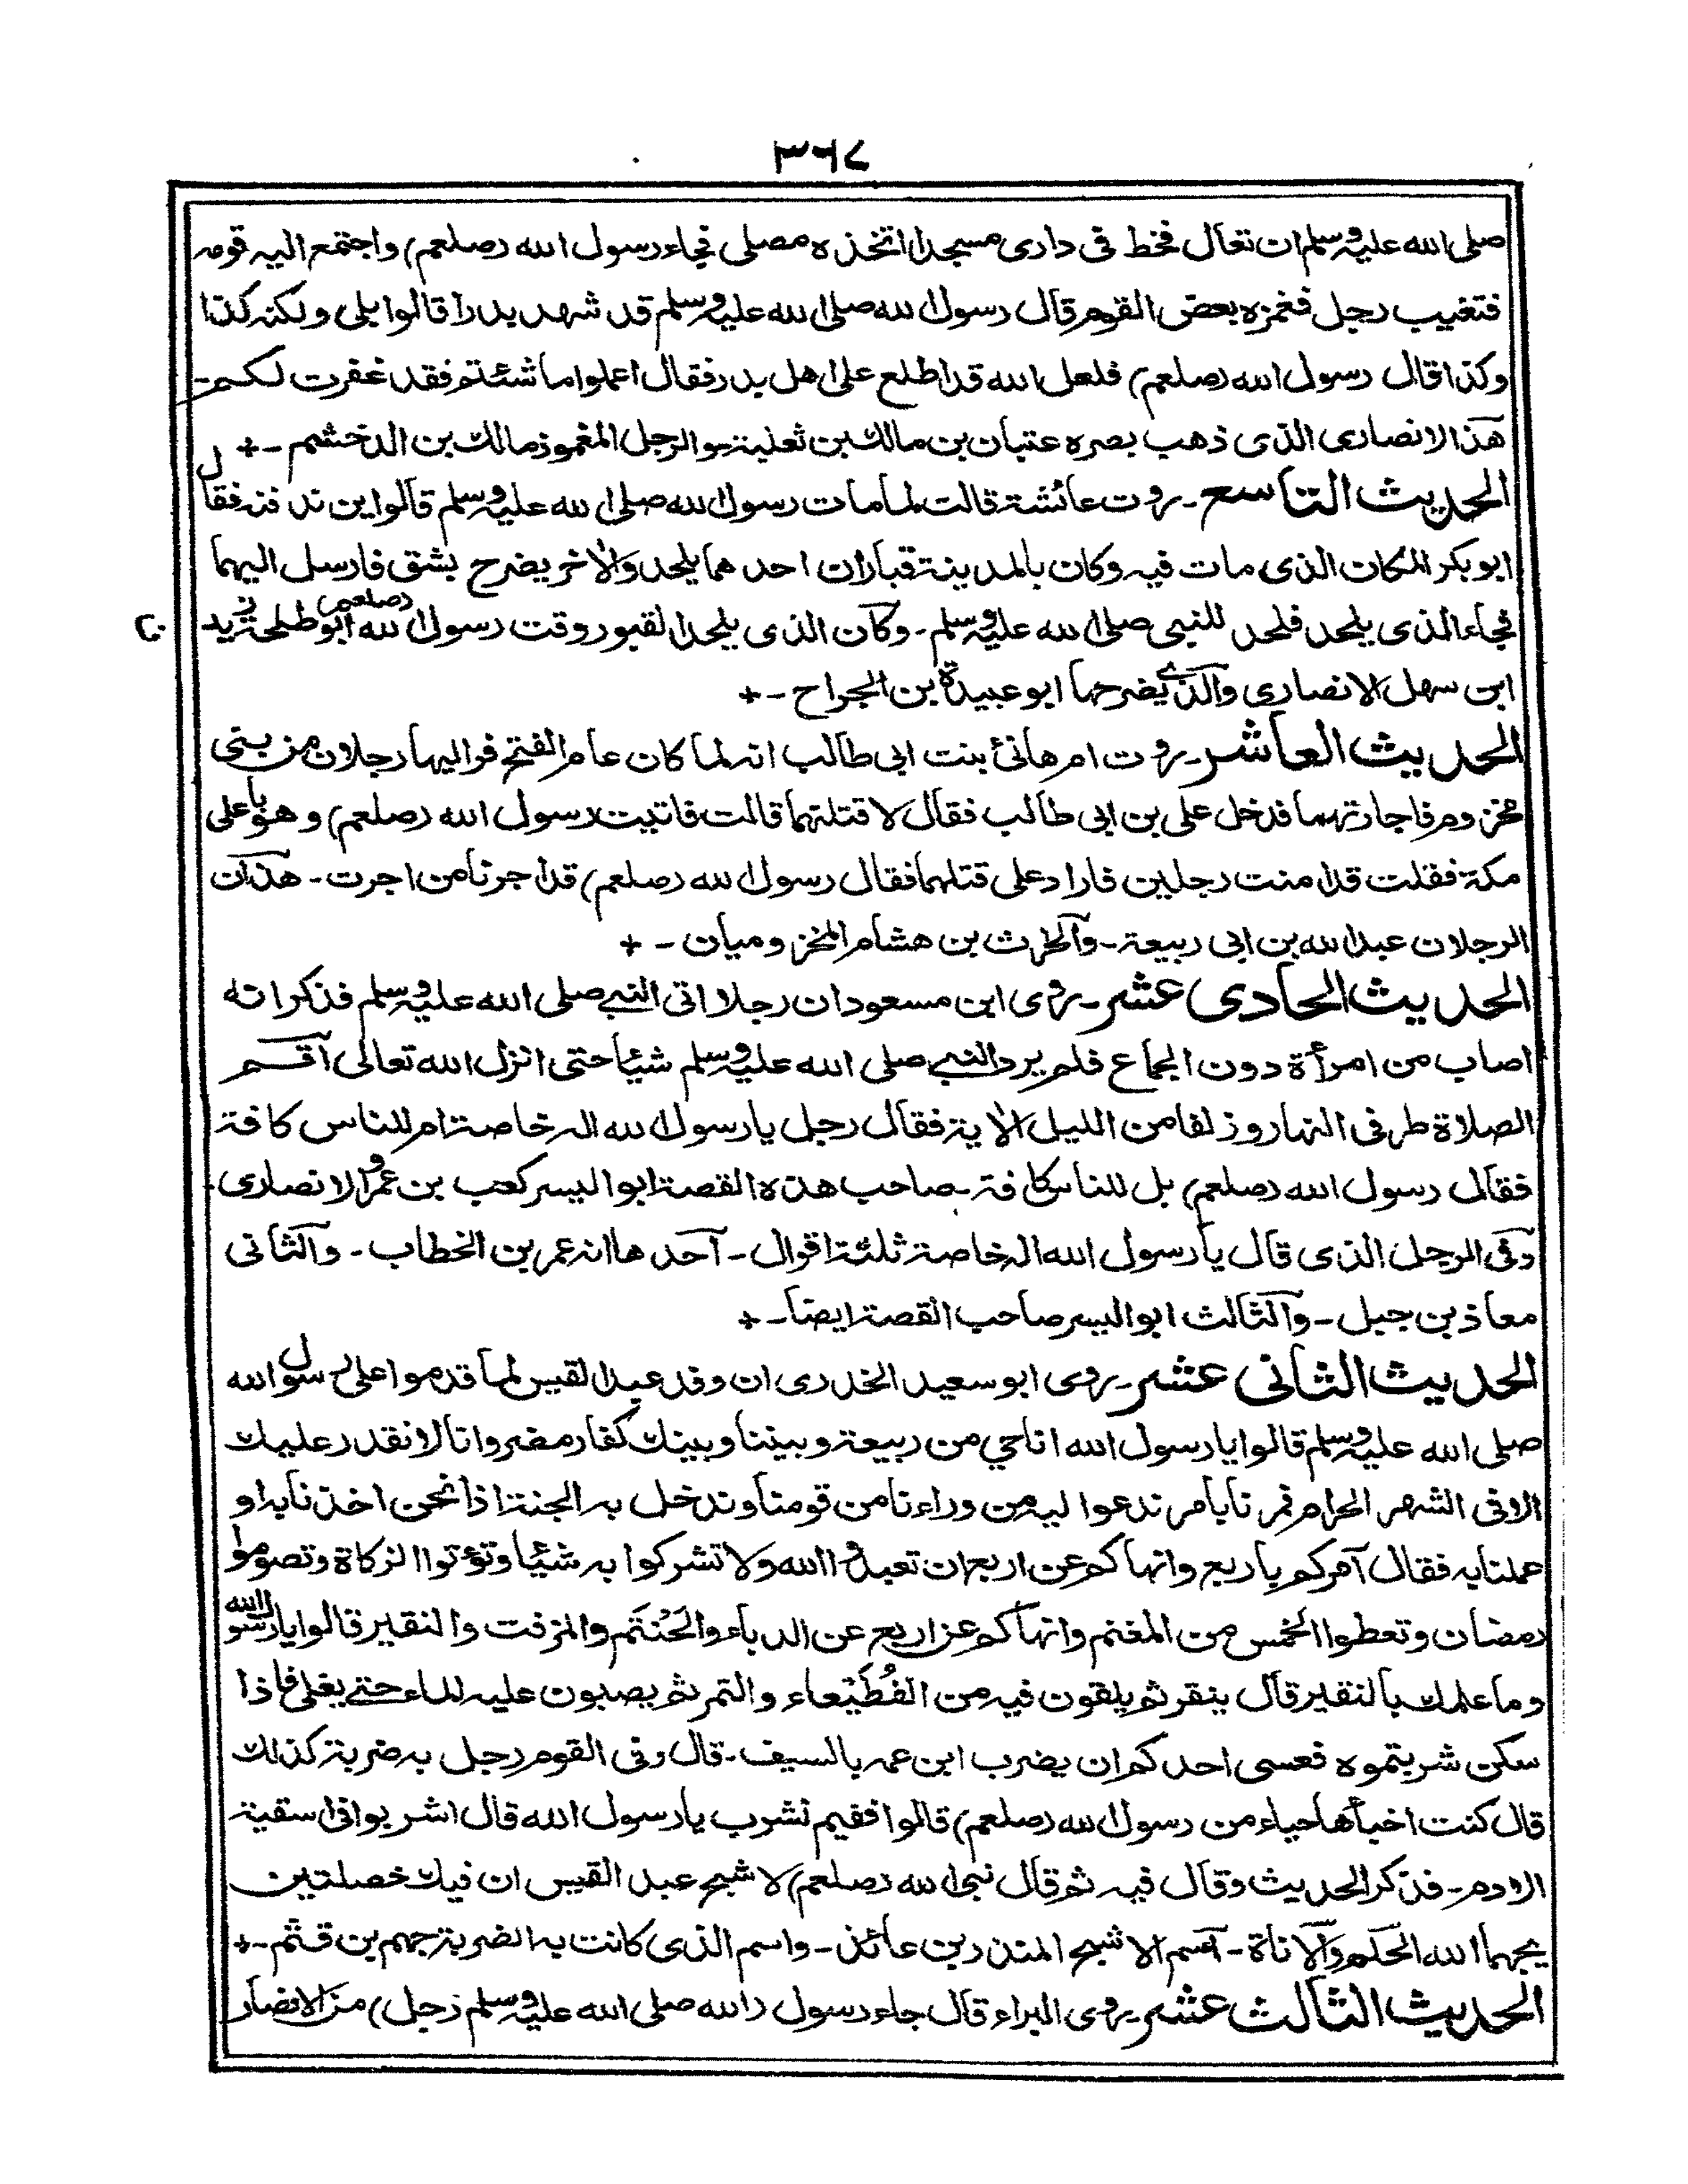 ٣٦٧
صلى الله عليه وسلم ان تعال فخط فى دارى مسجدا اتخذه مصلى فجاء رسول الله (صلعم) واجتمع اليه قومه
فتغيب رجل فغمزه بعض القوم قال رسول الله صلى الله عليه وسلم قد شهد بدرا قالوا بلى ولكنه كذا
وكذا قال رسول الله (صلعم) فلعل الله قد اطلع على اهل بدر فقال اعملوا ما شئتم فقد غفرت لكم-
هذا الانصارى الذى ذهب بصره عتبان بن مالك بن ثعلبة والرجل المغموز مالك بن الدخشم -+
الحديث التاسع- روت عائشة قالت لما مات رسول الله صلى الله عليه وسلم قالوا اين ندفنه فقال
ابو بكر المكان الذى مات فيه وكان بالمدينة قباران احدهما يلحد والاخر يضرح بشق فارسل اليهما
فجاء الذى يلحد فلحد للنبى صلى الله عليه وسلم- وكان الذى يلحد القبور وقت رسول الله (صلعم) ابو طلحة زيد
ابن سهل الانصارى والذى يضرحها ابو عبيدة بن الجراح -+
الحديث العاشر- روت ام هانئ بنت ابى طالب انه لما كان عام الفتح فر اليها رجلان من بنى
مخزوم فاجارتهما فدخل على بن ابى طالب فقال لاقتلنهما قالت فاتيت رسول الله (صلعم) وهو باعلى
مكة فقلت قد امنت رجلين فاراد على قتلهما فقال رسول الله (صلعم) قد اجرنا من اجرت- هذان
الرجلان عبد الله بن ابى ربيعة- والحرث بن هشام المخزوميان -+
الحديث الحادى عشر- روى ابن مسعود ان رجلا اتى النبى صلى الله عليه وسلم فذكر انه
اصاب من امرأة دون الجماع فلم يرد النبى صلى الله عليه وسلم شيئا حتى انزل الله تعالى اقم
الصلاة طرفى النهار وزلفا من الليل الاية فقال رجل يا رسول الله اله خاصة ام للناس كافة
فقال رسول الله (صلعم) بل للناس كافة- صاحب هذه القصة ابو اليسر كعب بن عمرو الانصارى-
وفى الرجل الذى قال يا رسول الله اله خاصة ثلثة اقوال- احدها انه عمر بن الخطاب- والثانى
معاذ بن جبل- والثالث ابو اليسر صاحب القصة ايضا-+
الحديث الثانى عشر- روى ابو سعيد الخدرى ان وفد عبد القيس لما قدموا على رسول الله
صلى الله عليه وسلم قالوا يا رسول الله انا حي من ربيعة وبيننا وبينك كفار مضر وانا لا نقدر عليك
الا فى الشهر الحرام فمرنا بامر ندعوا ليه من وراءنا من قومنا وندخل به الجنة اذا نحن اخذنا به او
عملنا به فقال آمركم باربع وانهاكم عن اربع ان تعبدوا الله ولا تشركوا به شيئا وتؤتوا الزكاة وتصوموا
رمضان وتعطوا الخمس من المغنم وانهاكم عن اربع عن الدباء والحَنْتَم والمزفت والنقير قالوا يا رسول الله
وما علمك بالنقير قال ينقر ثم يلقون فيه من القُطَيْعاء والتمر ثم يصبون عليه الماء حتى يغلى فاذا
سكن شربتموه فعسى احدكم ان يضرب ابن عمه بالسيف- قال وفى القوم رجل به ضربة كذلك
قال كنت اخبأها حياء من رسول الله (صلعم) قالوا ففيم نشرب يا رسول الله قال اشربوا فى اسقية
الادم- فذكر الحديث وقال فيه ثم قال نبى الله (صلعم) لاشج عبد القيس ان فيك خصلتين
يحبهما الله الحلم والاناة- اسم الاشج المنذر بن عائذ- واسم الذى كانت به الضربة جهم بن قثم-+
الحديث الثالث عشر- روى البراء قال جاء رسول (الله صلى الله عليه وسلم رجل) من الانصار